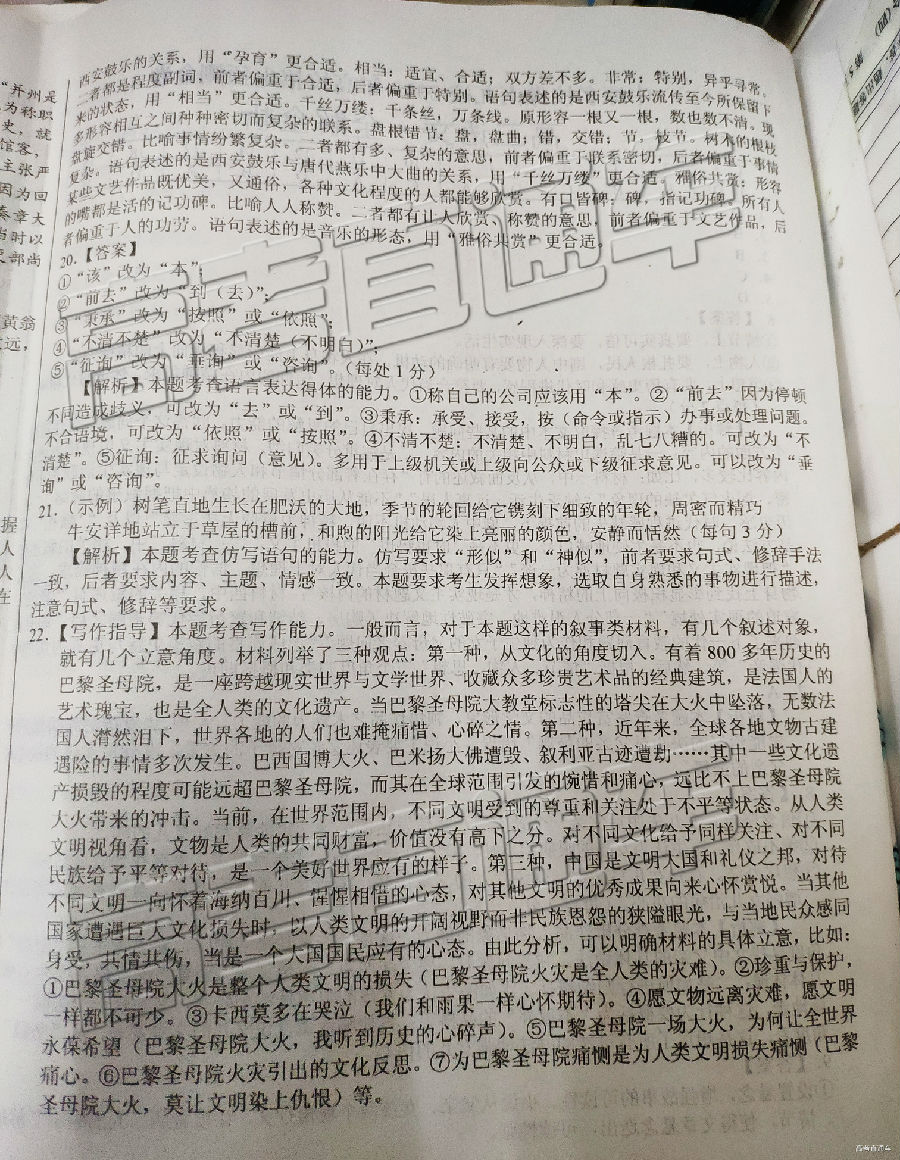 西安鼓乐的关系，用“孕育”更合适。相当：适宜、合适；双方差不多。非常：特别，异乎寻常。
二者都是程度副词，前者偏重于合适，后者偏重于特别。语句表述的是西安鼓乐流传至今所保留下
来的状态，用“相当”更合适。千丝万缕：千条丝，万条线。原形容一根又一根，数也数不清。现
多形容相互之间种种密切而复杂的联系。盘根错节：盘，盘曲；错，交错；节，枝节。树木的根枝
盘旋交错。比喻事情纷繁复杂。二者都有多、复杂的意思，前者偏重于联系密切，后者偏重于事情
复杂。语句表述的是西安鼓乐与唐代燕乐中大曲的关系，用“千丝万缕”更合适。雅俗共赏：形容
某些文艺作品既优美，又通俗，各种文化程度的人都能够欣赏。有口皆碑：碑，指记功碑。所有人
的嘴都是活的记功碑。比喻人人称赞。二者都有让人欣赏、称赞的意思，前者偏重于文艺作品，后
者偏重于人的功劳。语句表述的是音乐的形态，用“雅俗共赏”更合适。
20.【答案】
①“该”改为“本”；
②“前去”改为“到（去）”；
③“秉承”改为“按照”或“依照”；
④“不清不楚”改为“不清楚（不明白）”；
⑤“征询”改为“垂询”或“咨询”。（每处1分）
【解析】本题考查语言表达得体的能力。①称自己的公司应该用“本”。②“前去”因为停顿
不同造成歧义，可改为“去”或“到”。③秉承：承受、接受，按（命令或指示）办事或处理问题。
不合语境，可改为“依照”或“按照”。④不清不楚：不清楚、不明白，乱七八糟的。可改为“不
清楚”。⑤征询：征求询问（意见）。多用于上级机关或上级向公众或下级征求意见。可以改为“垂
询”或“咨询”。
21.（示例）树笔直地生长在肥沃的大地，季节的轮回给它镌刻下细致的年轮，周密而精巧
牛安详地站立于草屋的槽前，和煦的阳光给它染上亮丽的颜色，安静而恬然（每句3分）
【解析】本题考查仿写语句的能力。仿写要求“形似”和“神似”，前者要求句式、修辞手法
一致，后者要求内容、主题、情感一致。本题要求考生发挥想象，选取自身熟悉的事物进行描述，
注意句式、修辞等要求。
22.【写作指导】本题考查写作能力。一般而言，对于本题这样的叙事类材料，有几个叙述对象，
就有几个立意角度。材料列举了三种观点：第一种，从文化的角度切入。有着800多年历史的
巴黎圣母院，是一座跨越现实世界与文学世界、收藏众多珍贵艺术品的经典建筑，是法国人的
艺术瑰宝，也是全人类的文化遗产。当巴黎圣母院大教堂标志性的塔尖在大火中坠落，无数法
国人潸然泪下，世界各地的人们也难掩痛惜、心碎之情。第二种，近年来，全球各地文物古建
遇险的事情多次发生。巴西国博大火、巴米扬大佛遭毁、叙利亚古迹遭劫……其中一些文化遗
产损毁的程度可能远超巴黎圣母院，而其在全球范围引发的惋惜和痛心，远比不上巴黎圣母院
大火带来的冲击。当前，在世界范围内，不同文明受到的尊重和关注处于不平等状态。从人类
文明视角看，文物是人类的共同财富，价值没有高下之分。对不同文化给予同样关注、对不同
民族给予平等对待，是一个美好世界应有的样子。第三种，中国是文明大国和礼仪之邦，对待
不同文明一向怀着海纳百川、惺惺相惜的心态，对其他文明的优秀成果向来心怀赏悦。当其他
国家遭遇巨大文化损失时，以人类文明的开阔视野而非民族恩怨的狭隘眼光，与当地民众感同
身受，共情共伤，当是一个大国国民应有的心态。由此分析，可以明确材料的具体立意，比如：
①巴黎圣母院大火是整个人类文明的损失（巴黎圣母院火灾是全人类的灾难）。②珍重与保护，
一样都不可少。③卡西莫多在哭泣（我们和雨果一样心怀期待）。④愿文物远离灾难，愿文明
永葆希望（巴黎圣母院大火，我听到历史的心碎声）。⑤巴黎圣母院一场大火，为何让全世界
痛心。⑥巴黎圣母院火灾引出的文化反思。⑦为巴黎圣母院痛恻是为人类文明损失痛恻（巴黎
圣母院大火，莫让文明染上仇恨）等。
“并州是
为称职
史，就
馆客，
主张严
因为回
秦章大
当时以
部尚
黄翁
远，
握
人
人
在
高考直通车
高考直通车
高考直通车